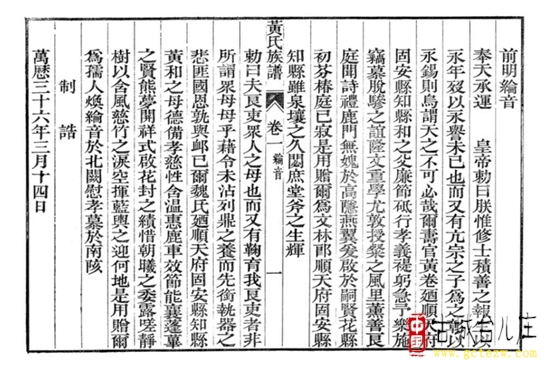 前明綸音
奉天承運　皇帝敕曰朕惟修士積善之報
永年及以永譽未已也而又有亢宗之子為之
永錫則烏謂天之不可必哉爾壽官黃卷廼順天府
固安縣知縣和之父廉節砥行孝義禔躬急
竊慕脫驂之誼隆文重學尤敦授粲之風里薰善良
庭聞詩禮鹿門無媿於高隱燕翼爰啟於嗣賢花縣
初芬椿庭已寂是用贈爾為文林郎順天府固安縣
知縣雖泉壤之久閟庶堂斧之生輝
敕曰夫良吏眾人之母也而又有鞠育我良吏者非
所謂眾母母乎藉令未沾列鼎之養而先銜執器之
悲匪國恩孰與卹已爾魏氏廼順天府固安縣知縣
黃和之母德備孝慈性含溫惠鹿車效節能襄蓬蓽
之賢熊夢開祥式啟花封之績惜朝曦之委露嗟靜
樹以含風慈竹之淚空揮藍輿之迎何地是用贈爾
為孺人煥綸音於北闕慰孝慕於南陔
制誥
萬曆三十六年三月十四日
黃氏族譜
卷一
綸音
一
中國
www.gctezw.com